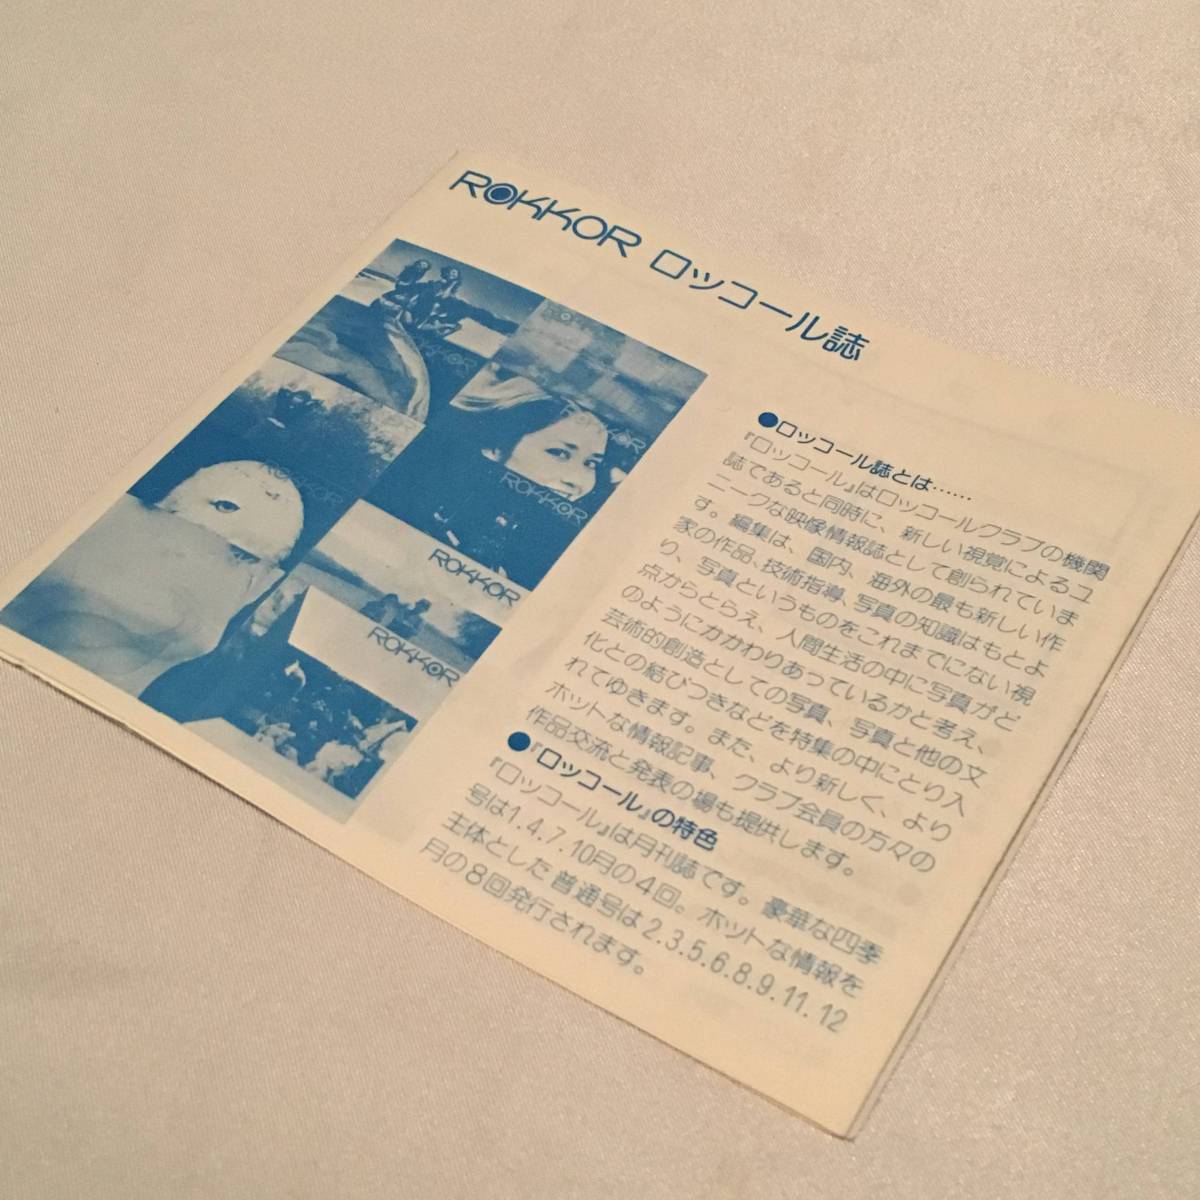 ROKKOR ロッコール誌
ROKKOR
ROKKOR
ROKKOR
ROKKOR
ROKKOR
ROKKOR
●ロッコール誌とは……
『ロッコール』はロッコールクラブの機関
誌であると同時に、新しい視覚によるユ
ニークな映像情報誌として創られていま
す。編集は、国内、海外の最も新しい作
家の作品、技術指導、写真の知識はもとよ
り、写真というものをこれまでにない視
点からとらえ、人間生活の中に写真がど
のようにかかわりあっているかと考え、
芸術的創造としての写真、写真と他の文
化との結びつきなどを特集の中にとり入
れてゆきます。また、より新しく、より
ホットな情報記事、クラブ会員の方々の
作品交流と発表の場も提供します。
●『ロッコール』の特色
『ロッコール』は月刊誌です。豪華な四季
号は1.4.7.10月の4回。ホットな情報を
主体とした普通号は2.3.5.6.8.9.11.12
月の8回発行されます。